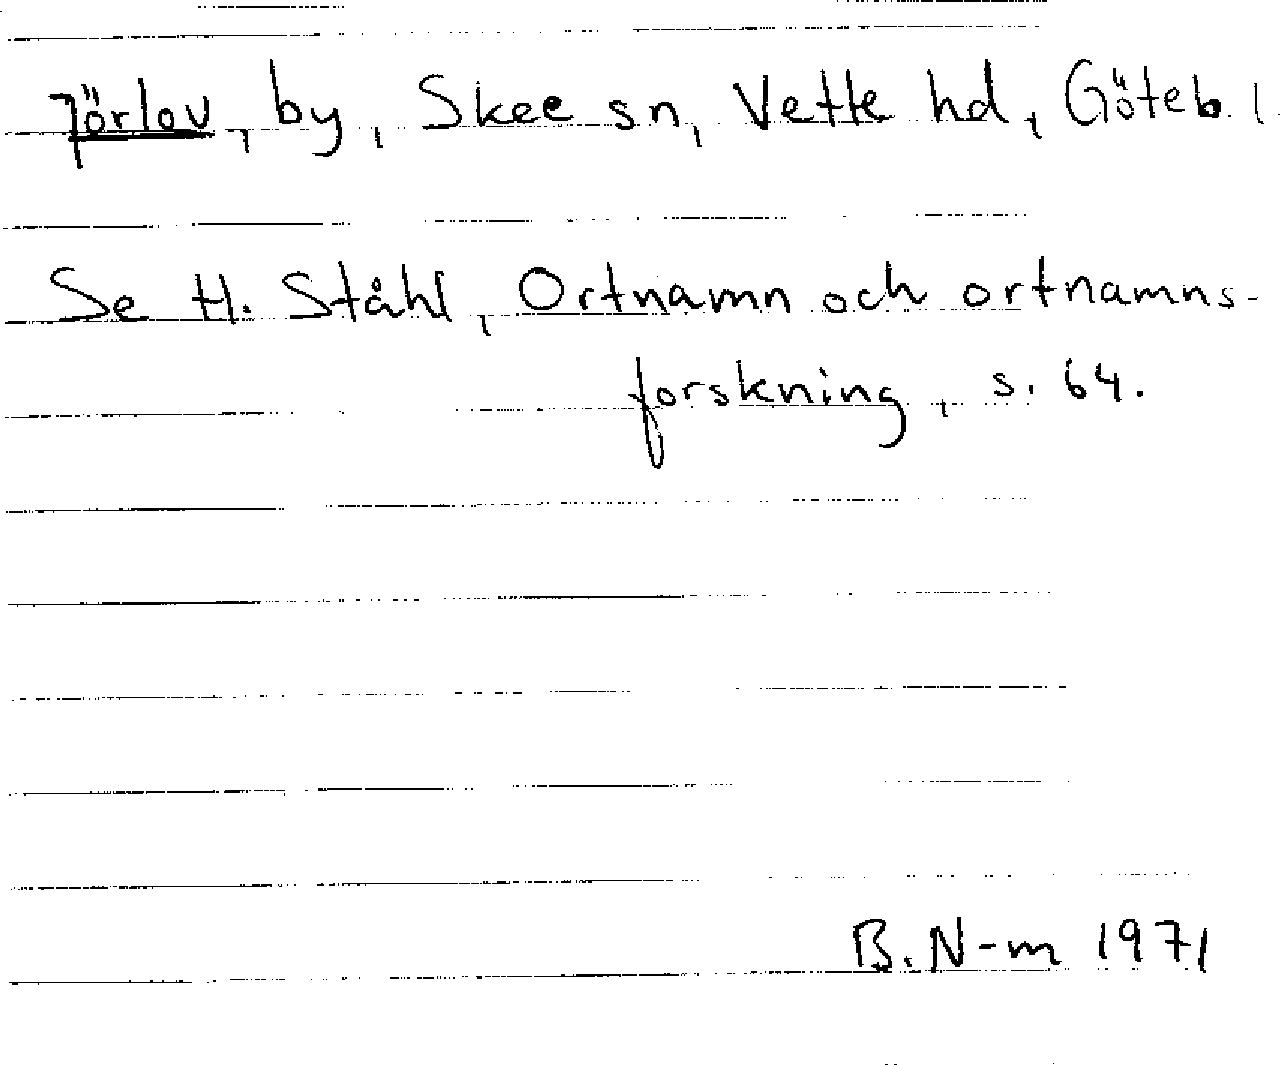 Jörlov, by, Skee sn, Vette hd, Göteb. l.
Se H. Ståhl, Ortnamn och ortnamns-
forskning, s. 64.
B. N-m 1971